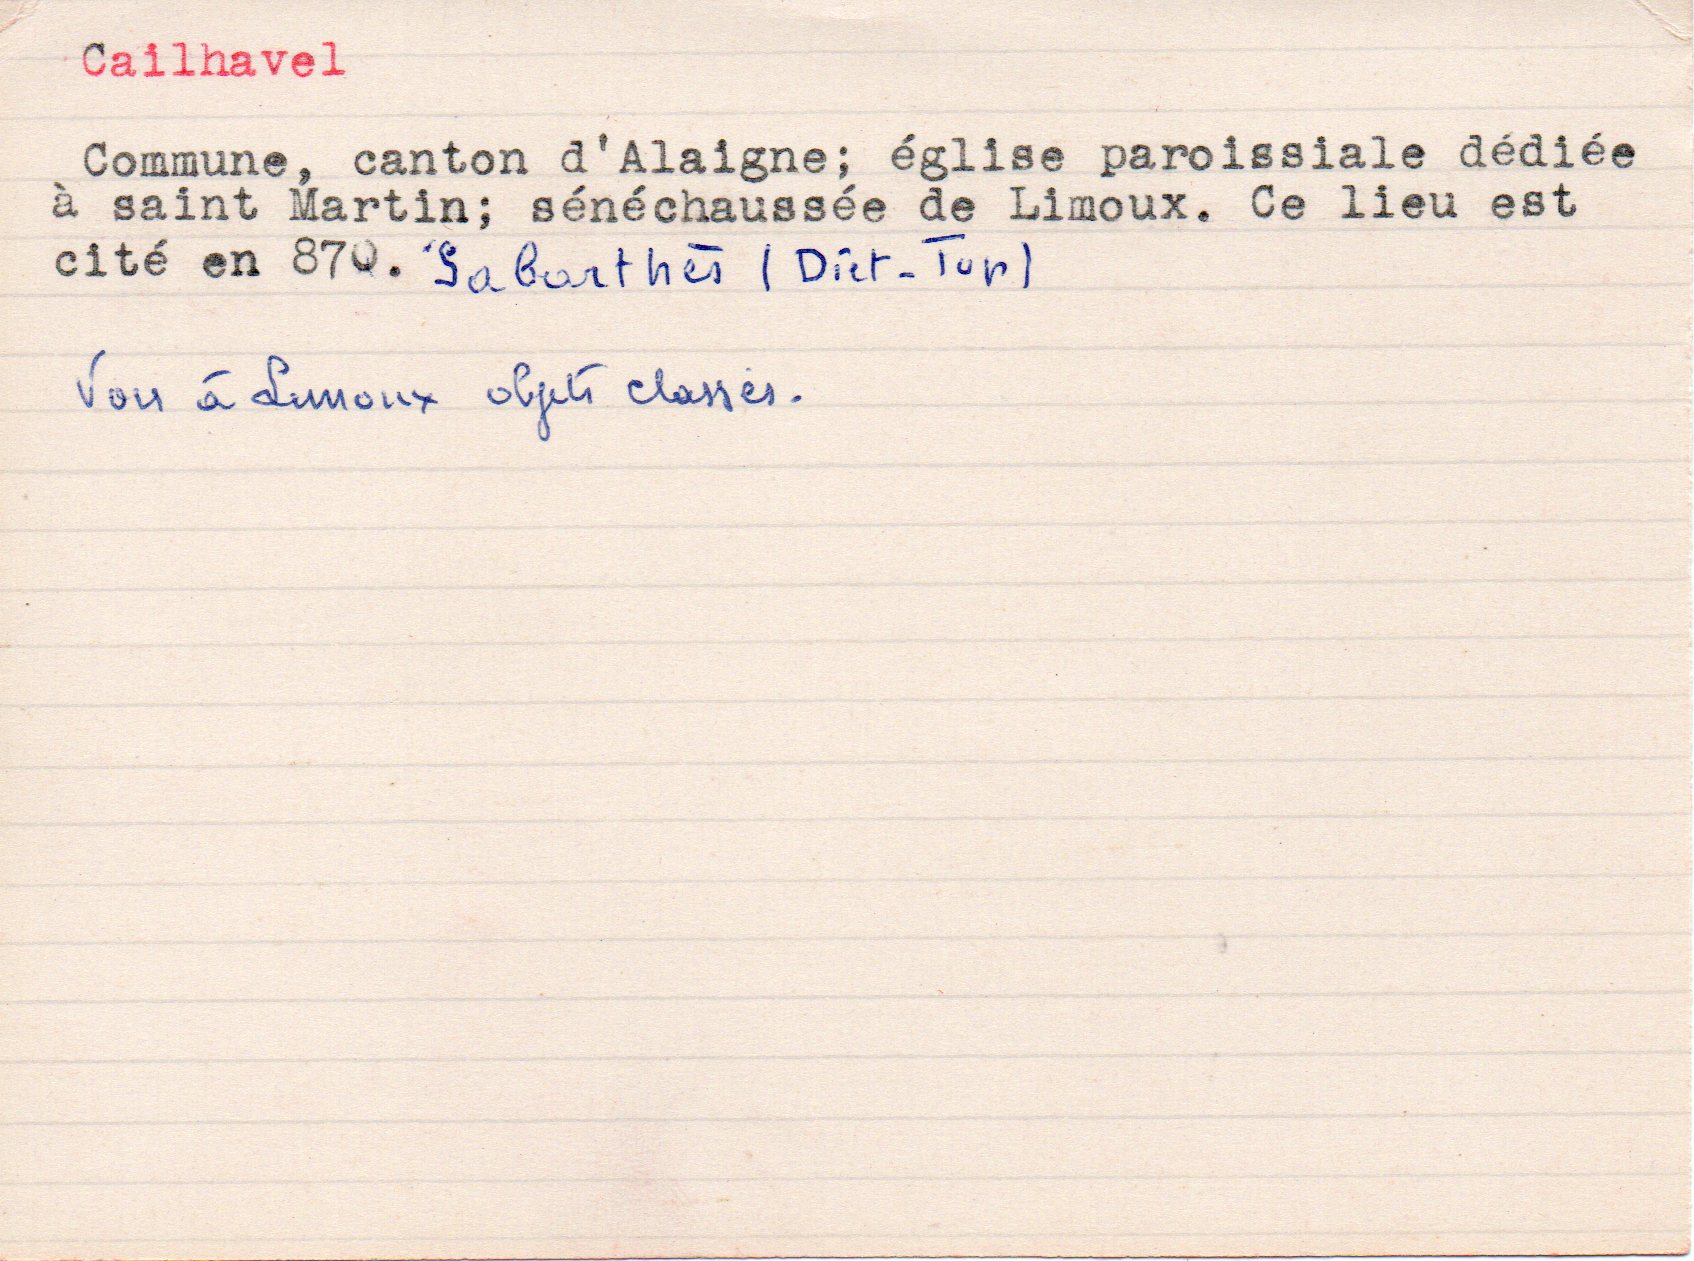 Cailhavel
Commune, canton d'Alaigne; église paroissiale dédiée
à saint Martin; sénéchaussée de Limoux. Ce lieu est
cité en 870. Sabarthès (Dict-Top)
Voir à Limoux objets classés.